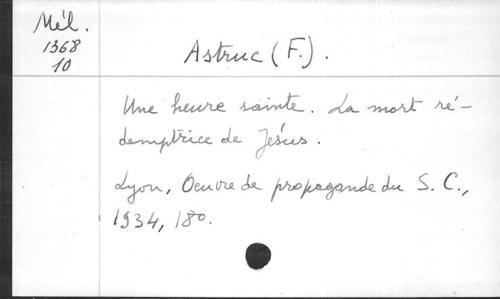 Mél.
1368
10
Astruc (F.).
Une heure sainte. La mort ré-
demptrice de Jésus.
Lyon, Oeuvre de propagande du S. C.,
1934, 18°.